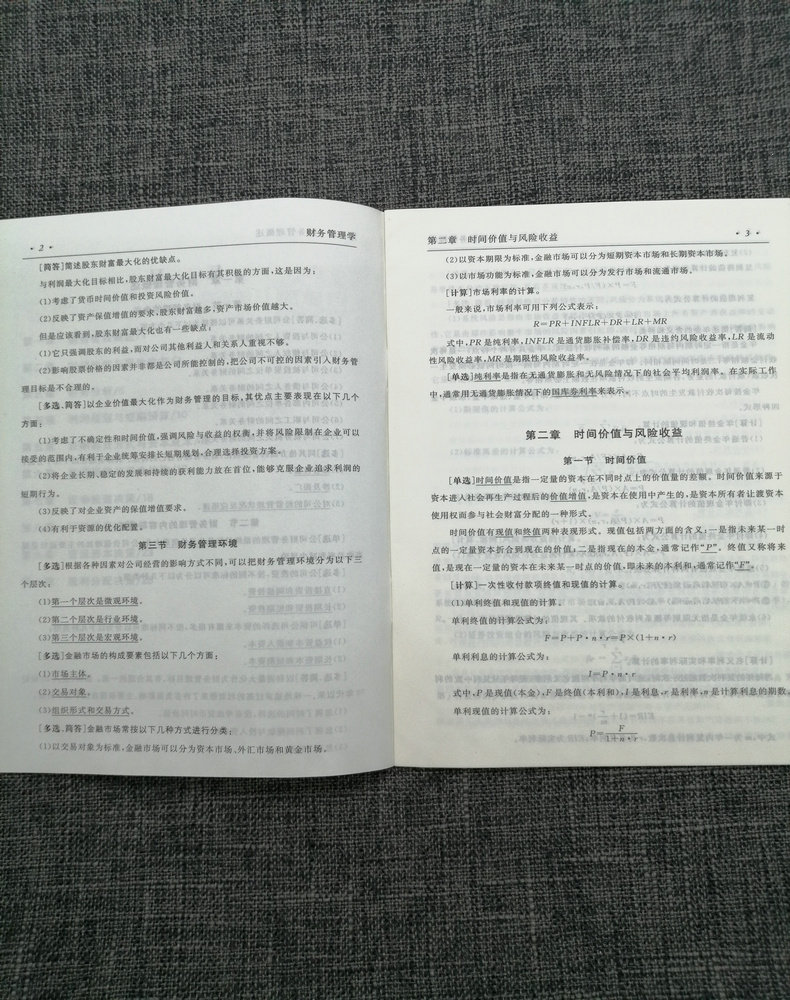 · 2 · 财务管理学
[简答]简述股东财富最大化的优缺点。
与利润最大化目标相比,股东财富最大化目标有其积极的方面,这是因为:
(1)考虑了货币时间价值和投资风险价值。
(2)反映了资产保值增值的要求,股东财富越多,资产市场价值越大。
但是应该看到,股东财富最大化也有一些缺点:
(1)它只强调股东的利益,而对公司其他利益人和关系人重视不够。
(2)影响股票价格的因素并非都是公司所能控制的,把公司不可控的因素引入财务管
理目标是不合理的。
[多选、简答]以企业价值最大化作为财务管理的目标,其优点主要表现在以下几个
方面:
(1)考虑了不确定性和时间价值,强调风险与收益的权衡,并将风险限制在企业可以
接受的范围内,有利于企业统筹安排长短期规划、合理选择投资方案。
(2)将企业长期、稳定的发展和持续的获利能力放在首位,能够克服企业追求利润的
短期行为。
(3)反映了对企业资产的保值增值要求。
(4)有利于资源的优化配置。
第三节 财务管理环境
[多选]根据各种因素对公司经营的影响方式不同,可以把财务管理环境分为以下三
个层次:
(1)第一个层次是微观环境。
(2)第二个层次是行业环境。
(3)第三个层次是宏观环境。
[多选]金融市场的构成要素包括以下几个方面:
(1)市场主体。
(2)交易对象。
(3)组织形式和交易方式。
[多选、简答]金融市场常按以下几种方式进行分类:
(1)以交易对象为标准,金融市场可以分为资本市场、外汇市场和黄金市场。
第二章 时间价值与风险收益 · 3 ·
(2)以资本期限为标准,金融市场可以分为短期资本市场和长期资本市场。
(3)以市场功能为标准,金融市场可以分为发行市场和流通市场。
[计算]市场利率的计算。
一般来说,市场利率可用下列公式表示:
R=PR+INFLR+DR+LR+MR
式中,PR 是纯利率,INFLR 是通货膨胀补偿率,DR 是违约风险收益率,LR 是流动
性风险收益率,MR 是期限性风险收益率。
[单选]纯利率是指在无通货膨胀和无风险情况下的社会平均利润率。在实际工作
中,通常用无通货膨胀情况下的国库券利率来表示。
第二章 时间价值与风险收益
第一节 时间价值
[单选]时间价值是指一定量的资本在不同时点上的价值量的差额。时间价值来源于
资本进入社会再生产过程后的价值增值,是资本在使用中产生的,是资本所有者让渡资本
使用权而参与社会财富分配的一种形式。
时间价值有现值和终值两种表现形式。现值包括两方面的含义:一是指未来某一时
点的一定量资本折合到现在的价值;二是指现在的本金,通常记作“P”。终值又称将来
值,是现在一定量的资本在未来某一时点的价值,即未来的本利和,通常记作“F”。
[计算]一次性收付款项终值和现值的计算。
(1)单利终值和现值的计算。
单利终值的计算公式为:
F=P+P·n·r=P×(1+n·r)
单利利息的计算公式为:
I=P·n·r
式中,P 是现值(本金),F 是终值(本利和),I 是利息,r 是利率,n 是计算利息的期数。
单利现值的计算公式为:
P=F/(1+n·r)